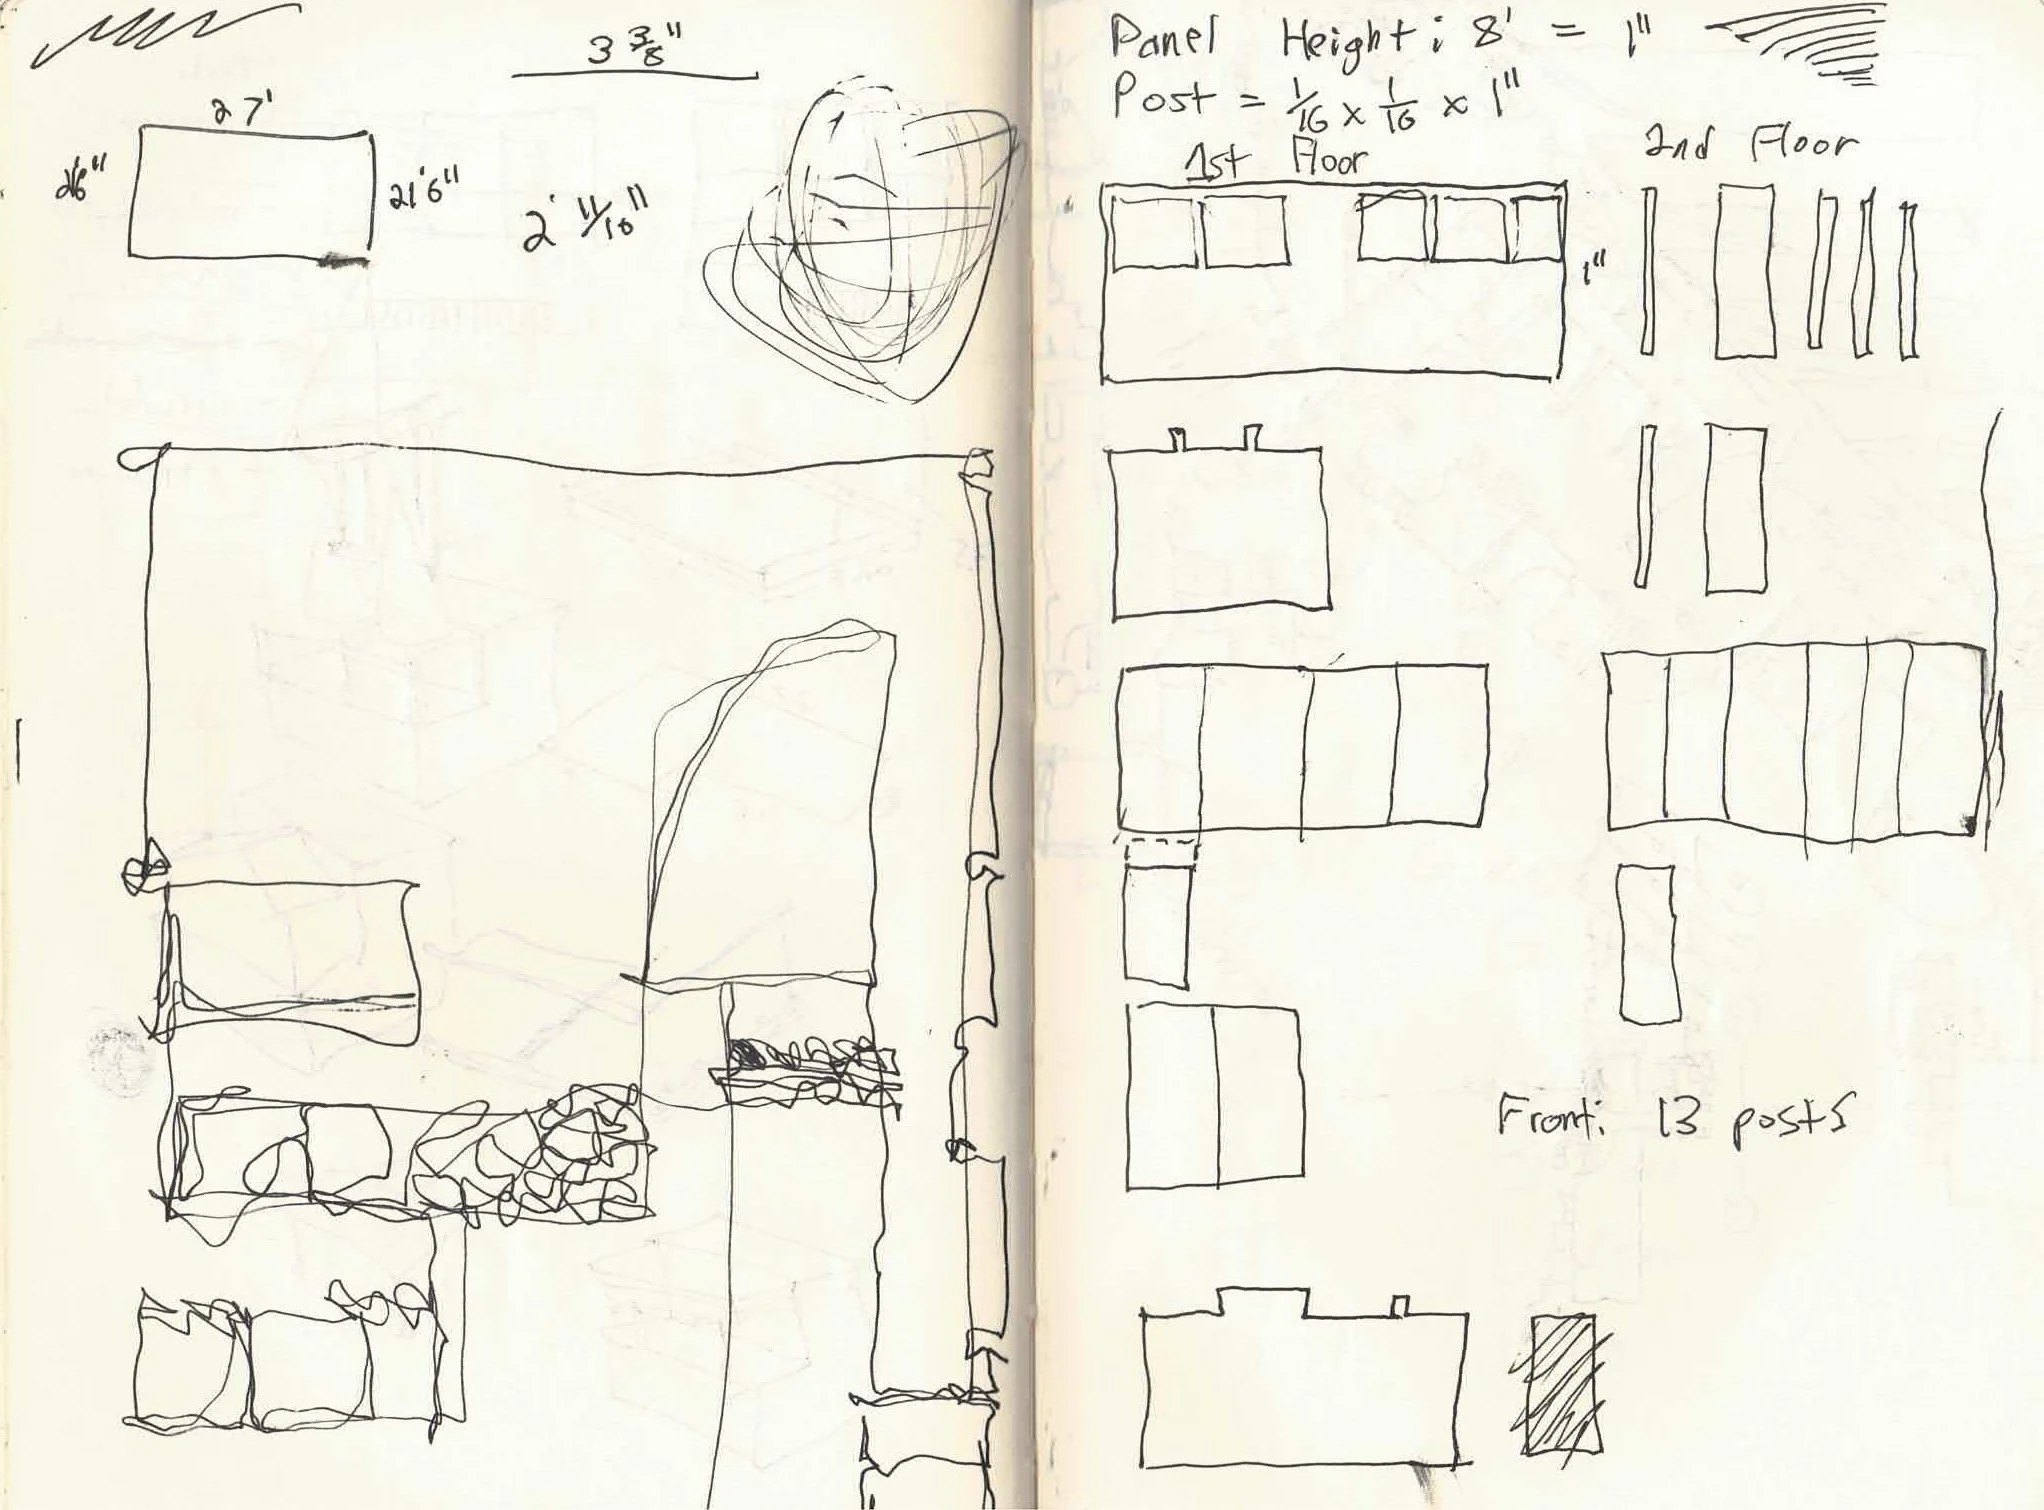 3 3/8"
27'
21'6"
2' 11/16"
Panel Height: 8' = 1"
Post = 1/16 x 1/16 x 1"
1st Floor
2nd Floor
1"
Front: 13 posts